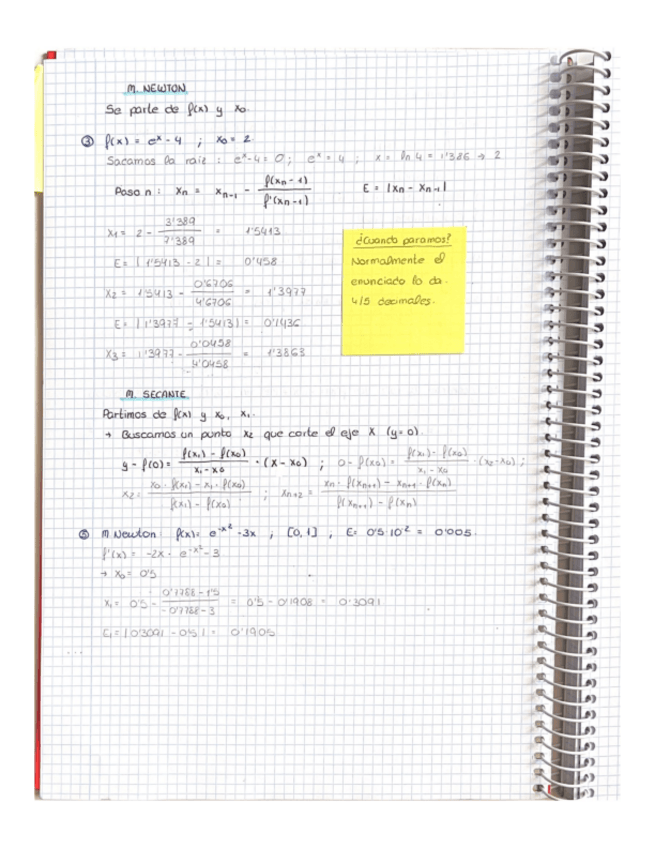 M. NEWTON
Se parte de f(x) y x₀.
③ f(x) = eˣ - 4 ; x₀ = 2
Sacamos la raíz : eˣ-4 = 0 ; eˣ = 4 ; x = ln 4 = 1'386 → 2
Paso n : xₙ = xₙ₋₁ - f(xₙ-1) / f'(xₙ-1) E = |xₙ - xₙ₋₁|
x₁ = 2 - 3'389 / 7'389 = 1'5413
E = | 1'5413 - 2 | = 0'458
x₂ = 1'5413 - 0'6706 / 4'6706 = 1'3977
E = | 1'3977 - 1'5413 | = 0'1436
x₃ = 1'3977 - 0'0458 / 4'0458 = 1'3863
¿Cuando paramos?
Normalmente el
enunciado lo da.
4/5 decimales.
M. SECANTE
Partimos de f(x) y x₀, x₁.
→ Buscamos un punto x₂ que corte el eje X (y=0)
y - f(0) = f(x₁) - f(x₀) / x₁ - x₀ · (x - x₀) ; 0 - f(x₀) = f(x₁) - f(x₀) / x₁ - x₀ · (x₂-x₀) ;
x₂ = x₀ · f(x₁) - x₁ · f(x₀) / f(x₁) - f(x₀) ; xₙ₊₂ = xₙ · f(xₙ₊₁) - xₙ₊₁ · f(xₙ) / f(xₙ₊₁) - f(xₙ)
⑤ M Newton f(x) = e^-x² -3x ; [0, 1] , E = 0'5·10⁻² = 0'005.
f'(x) = -2x · e^-x² - 3
→ x₀ = 0'5
x₁ = 0'5 - 0'7788 - 1'5 / -0'7788 - 3 = 0'5 - 0'1908 = 0'3091
E₁ = | 0'3091 - 0'5 | = 0'1905